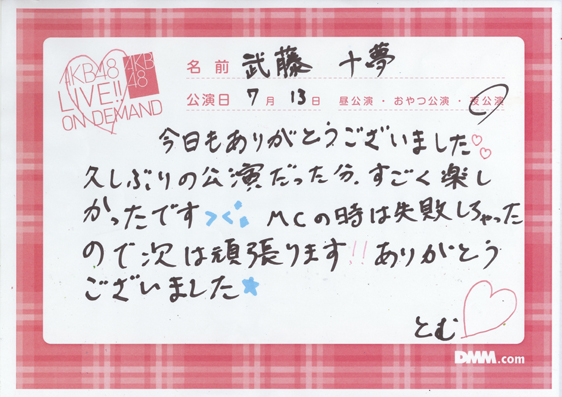 AKB48
LIVE!!
ON DEMAND
AKB
48
名前 武藤 十夢
公演日 7月13日 昼公演・おやつ公演・夜公演
今日もありがとうございました♡♡
久しぶりの公演だった分、すごく楽し
かったです MCの時は失敗しちゃった
ので次は頑張ります!! ありがとう
ございました★
とむ♡
DMM.com